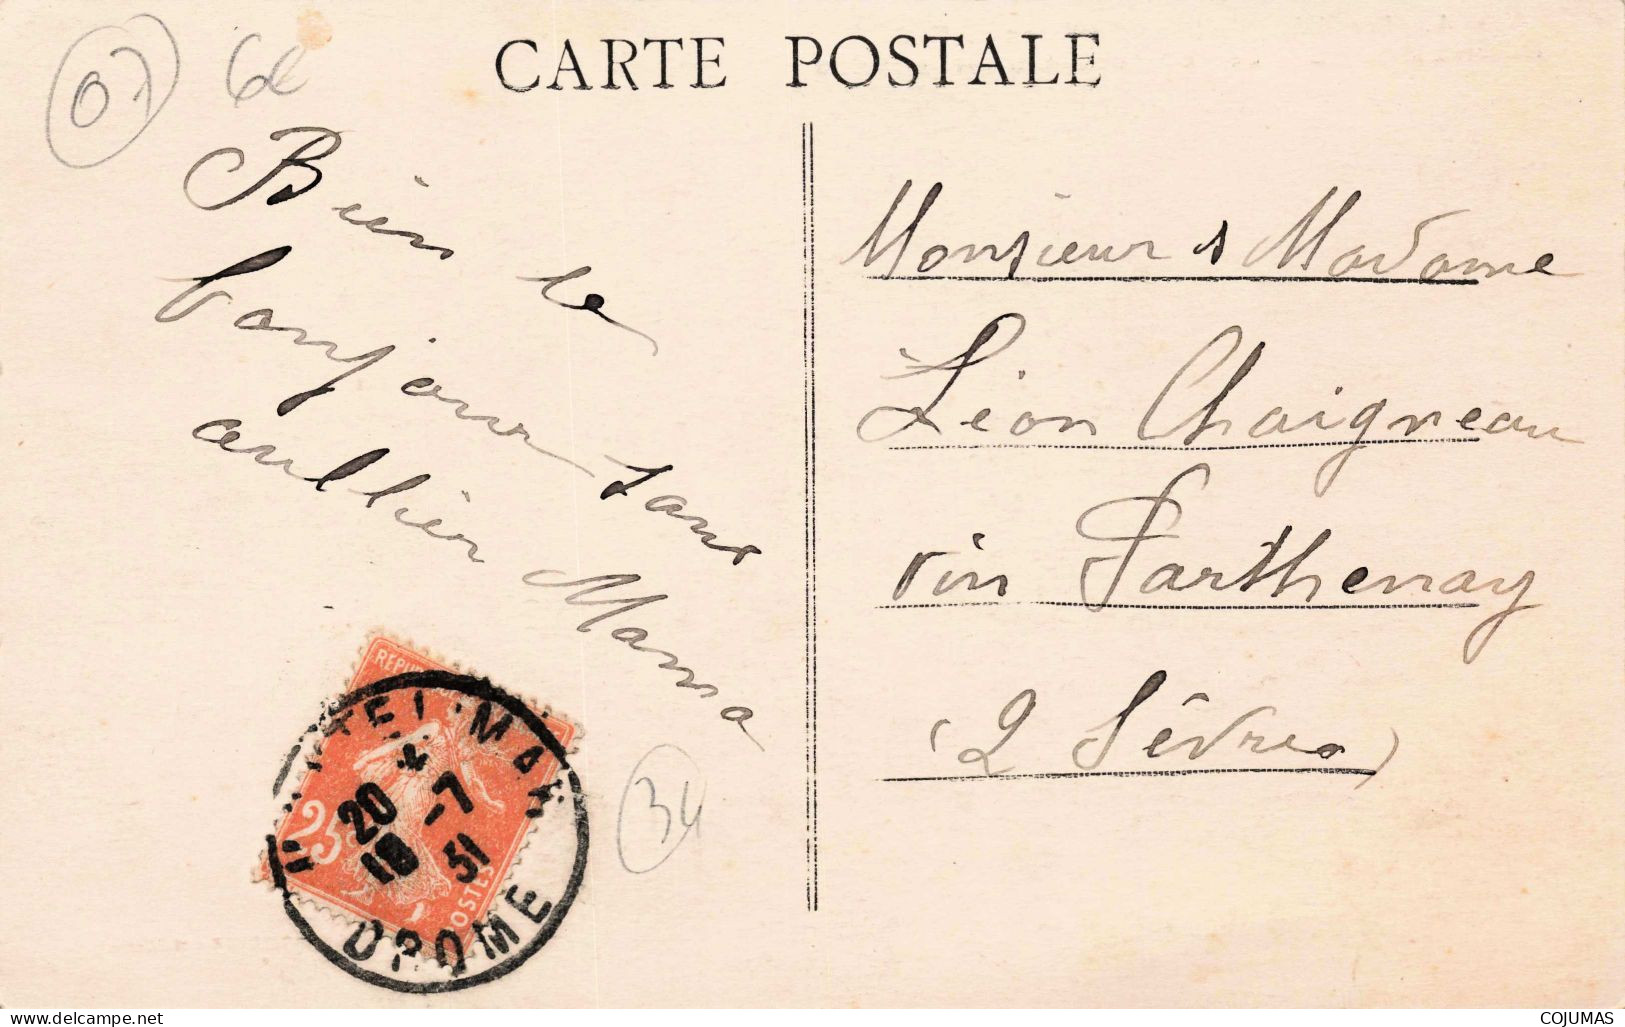 CARTE POSTALE
07
6€
Bien le
bonjour sans
oublier Mama
34
Monsieur & Madame
Léon Chaigneau
vin Parthenay
(2 Sèvres)
MONTELIMAR
20 * -7
31
DROME
25
POSTES
www.delcampe.net
COJUMAS